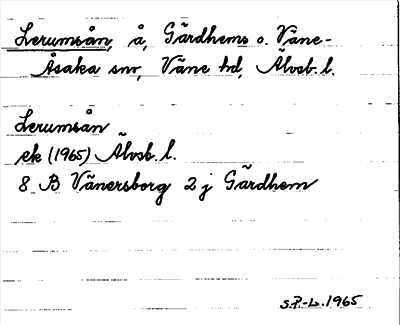 Lerumsån, å, Gärdhems o. Väne-
Åsaka snr, Väne hd, Älvsb. l.
Lerumsån
ek (1965) Älvsb. l.
8 B Vänersborg 2 j Gärdhem
S.P-L. 1965